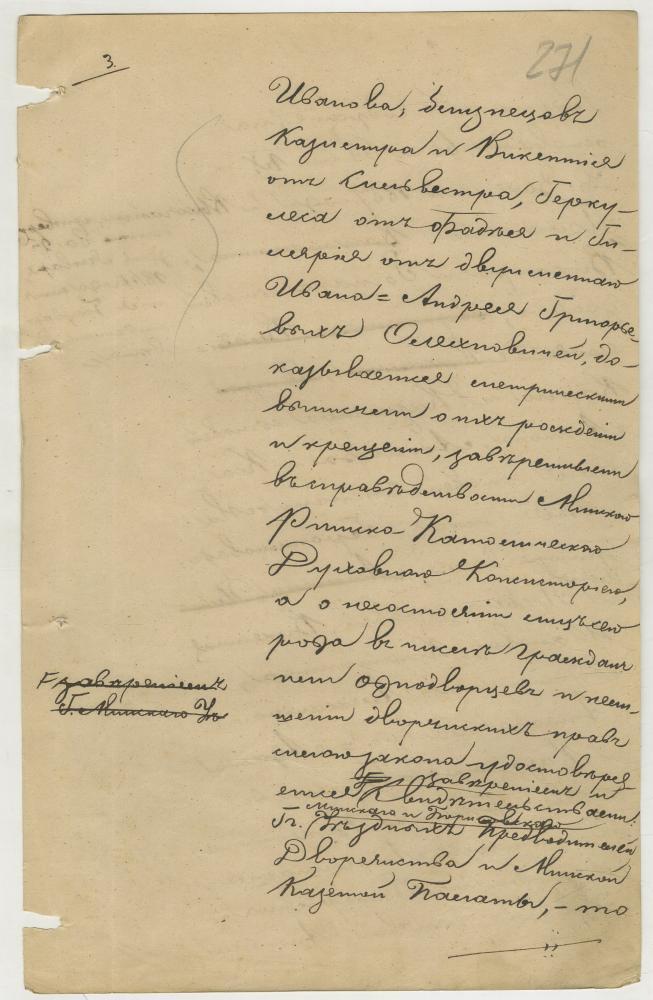 3.
271
Иванова, близнецовъ
Казимира и Викентія
отъ Сильвестра, Герку-
леса отъ Фадѣя и Ги-
лярія отъ двуименнаго
Ивана=Андрея Григорье-
выхъ Олехновичей, до-
казывается метрическими
выписями о ихъ рожденіи
и крещеніи, завѣренными
въ справедливости Минскою
Римско-Католическою
Духовною Консисторіею,
а о несостояніи лицъ сего
рода въ числѣ граждан
или однодворцевъ и нели-
шеніи дворянскихъ правъ
силою закона удостовѣря
ется завѣреніемъ и
свидѣтельствами:
Минскаго и Борисовскаго
Гг. Уѣздныхъ Предводителей
Дворянства и Минской
Казенной Палаты, – то
завѣреніемъ
Г. Минскаго Уѣ